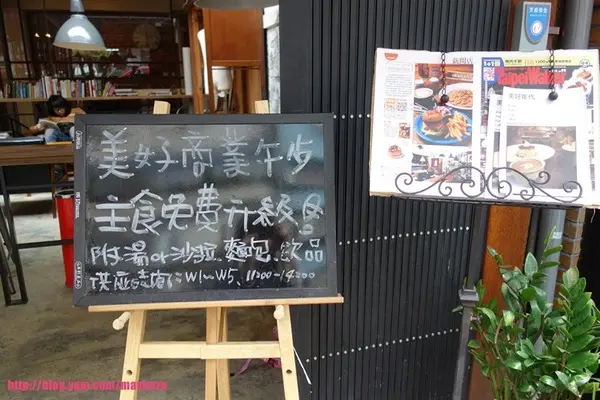 美好商業午步
主食免費升級
附湯or沙拉.麵包.飲品
供應時間：W1~W5、11:00-14:00
Taipei Walker
http://blog.yam.com/